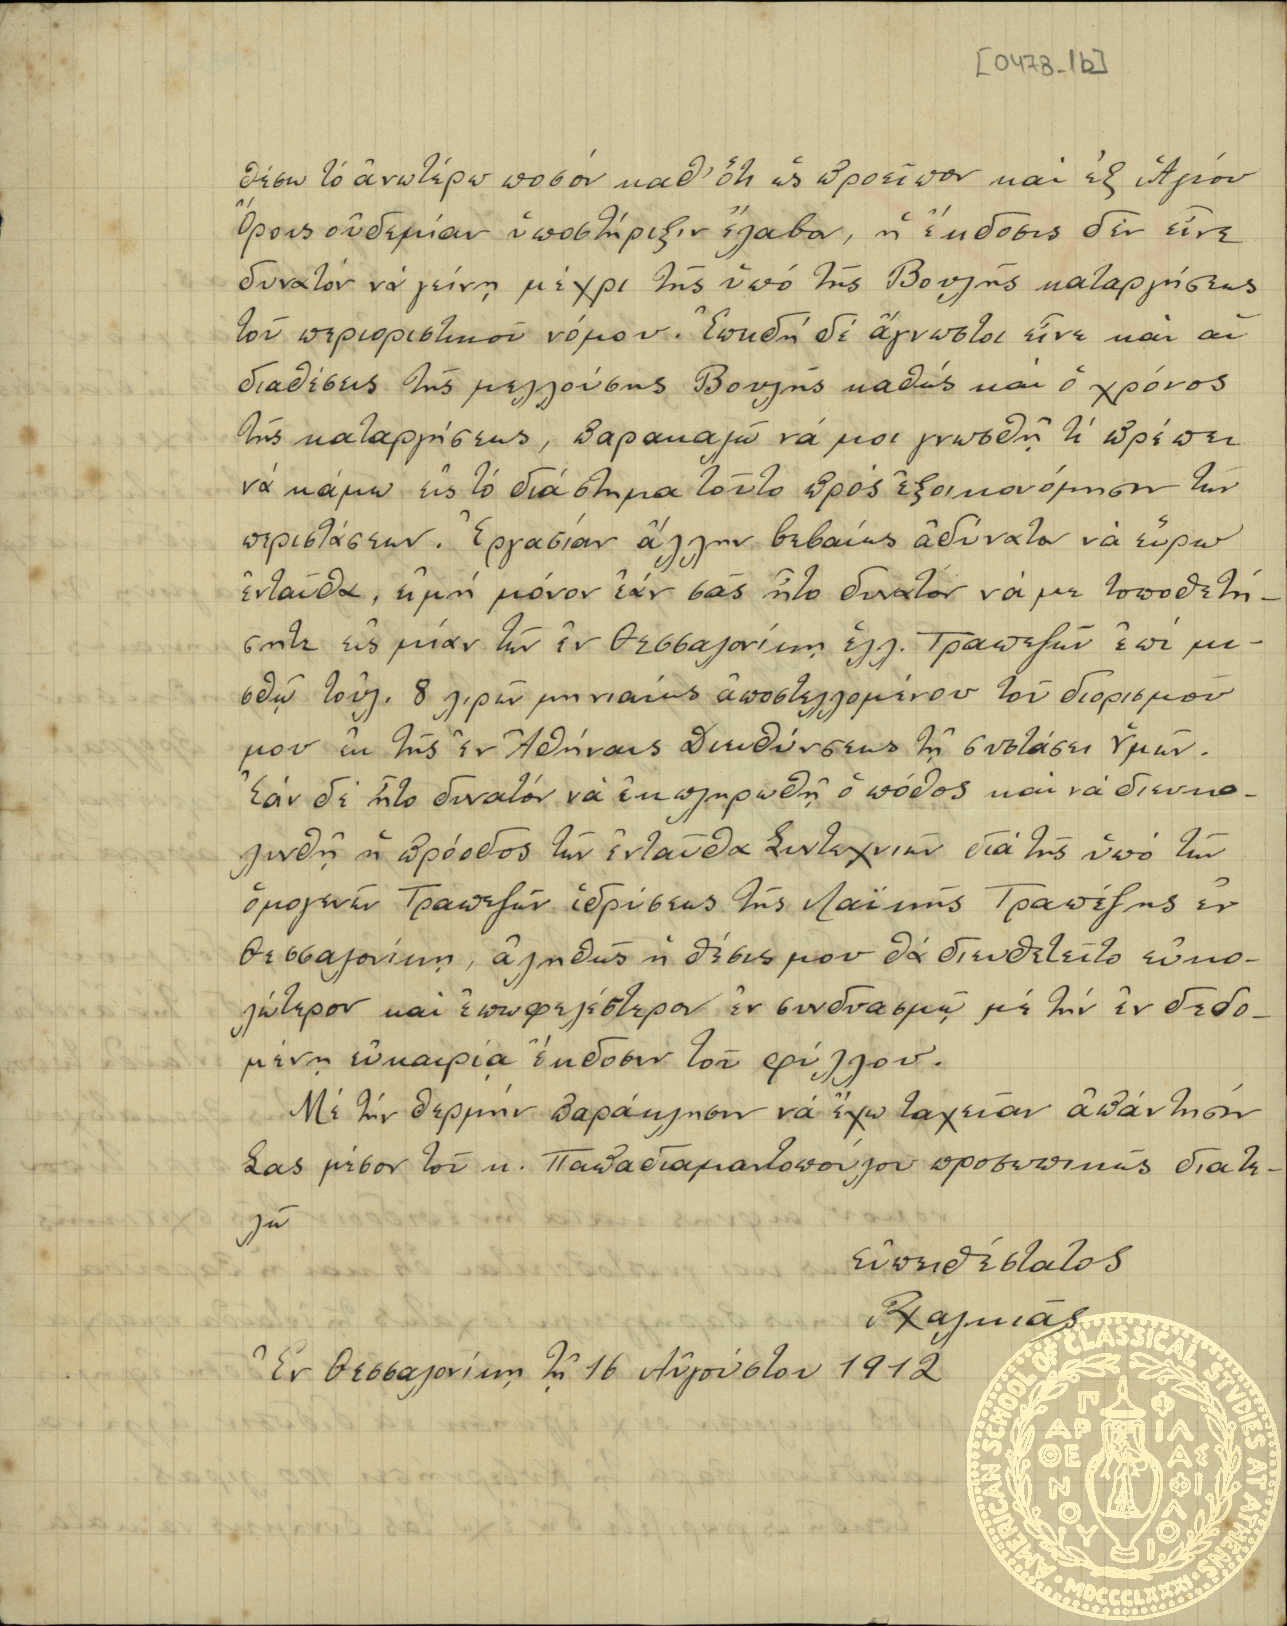 [0478-1b]
θέσω τό ἀνωτέρω ποσόν καθ' ὅτι ὡς προεῖπον καὶ ἐξ Ἁγίου
Ὄρους οὐδεμίαν ὑποστήριξιν ἔλαβον, ἡ ἔκδοσις δέν εἶνε
δυνατόν νά γείνῃ μέχρι τῆς ὑπό τῆς Βουλῆς καταργήσεως
τοῦ περιοριστικοῦ νόμου. Ἐπειδή δέ ἄγνωστοι εἶνε καὶ αἱ
διαθέσεις τῆς μελλούσης Βουλῆς καθώς καὶ ὁ χρόνος
τῆς καταργήσεως, παρακαλῶ νά μοι γνωσθῇ τί πρέπει
νά κάμω εἰς τό διάστημα τοῦτο πρός ἐξοικονόμησιν τῶν
περιστάσεων. Ἐργασίαν ἄλλην βεβαίως ἀδύνατον νά εὕρω
ἐνταῦθα, εἰμή μόνον ἐάν σᾶς ἦτο δυνατόν νά με τοποθετή-
σητε εἰς μίαν τῶν ἐν Θεσσαλονίκῃ ἑλλ. Τραπεζῶν ἐπί μι-
σθῷ τοὐλ. 8 λιρῶν μηνιαίως ἀποστελλομένου τοῦ διορισμοῦ
μου ἐκ τῆς ἐν Ἀθήναις Διευθύνσεως τῇ συστάσει Ὑμῶν.
Ἐάν δέ ἦτο δυνατόν νά ἐκπληρωθῇ ὁ πόθος καί νά διευκο-
λυνθῇ ἡ πρόοδος τῶν ἐνταῦθα Συντεχνιῶν διά τῆς ὑπό τῶν
ὁμογενῶν Τραπεζῶν ἱδρύσεως τῆς Λαϊκῆς Τραπέζης ἐν
Θεσσαλονίκῃ, ἀληθῶς ἡ θέσις μου θά διευθετεῖτο εὐκο-
λώτερον καὶ ἐπωφελέστερον ἐν συνδυασμῷ μέ τήν ἐν δεδο-
μένῃ εὐκαιρίᾳ ἔκδοσιν τοῦ φύλλου.
Μέ τήν θερμήν παράκλησιν νά ἔχω ταχεῖαν ἀπάντησίν
Σας μέσον τοῦ κ. Παπαδιαμαντοπούλου προσωπικῶς διατε-
λῶ
εὐπειθέστατος
Χαλκιᾶς
Ἐν Θεσσαλονίκῃ τῇ 16 Αὐγούστου 1912
AMERICAN SCHOOL OF CLASSICAL STUDIES AT ATHENS
ΠΑΡΘΕΝΟΥ ΦΙΛΑΣ ΦΙΛΟΙ
MDCCCLXXXI